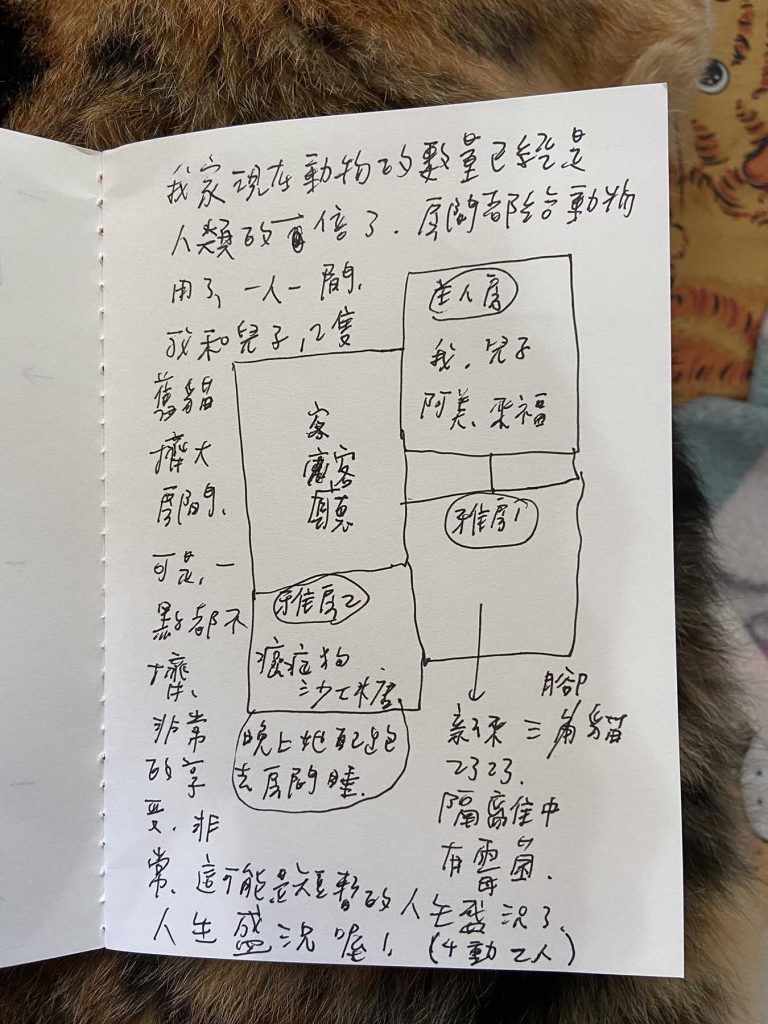 我家現在動物的數量已經是
人類的 倍了.房間都給動物
用了,一人一間,
我和兒子,2隻
舊貓
擠大
房間,
可是,一
點都不
擠,
非常
的享
受,非
常,這可能是短暫的人生盛況了,
人生盛況喔!(4動2人)
主人房
我,兒子
阿美,來福
客
廳
雅房1
雅房2
癌症狗
沙士糖,
晚上她自己跑
去房間睡.
腳
新來三角貓
2323.
隔離住中
有霉菌.